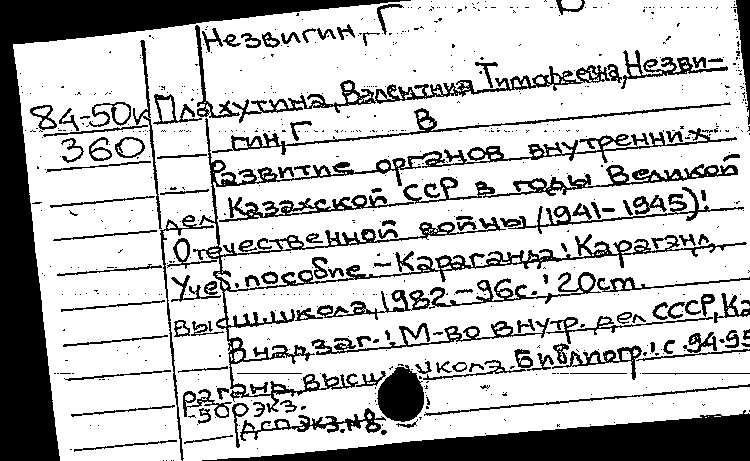 Незвигин, Г В
84-50к Плахутина, Валентина Тимофеевна, Незви-
360 гин, Г В
Развитие органов внутренних
дел Казахской ССР в годы Великой
Отечественной войны (1941-1945)!
Учеб. пособие. - Караганда! Караганд.
высш. школа, 1982. - 96с.; 20см.
В надзаг.! М-во внутр. дел СССР, Ка
раганд. высш. школа. Библиогр.! с 94-95
500 экз.
дсп экз.№8.